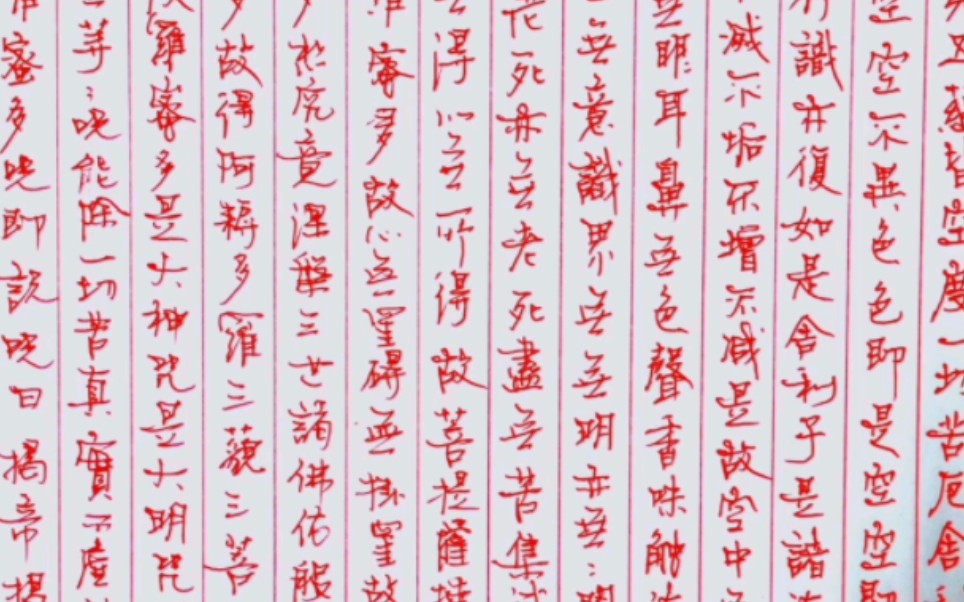 五蘊皆空度一切苦厄舍
空空不異色色即是空空即
行識亦復如是舍利子是諸
滅不垢不增不減是故空中
無眼耳鼻無色聲香味觸法
無意識界無無明亦無：明
死亦無老死盡無苦集滅
無得以無所得故菩提薩埵
蜜多故心無罣礙無掛罣故
於究竟涅槃三世諸佛依般
多故得阿耨多羅三藐三菩
羅蜜多是大神咒是大明咒
等：咒能除一切苦真實不虛
蜜多咒即說咒曰揭帝揭